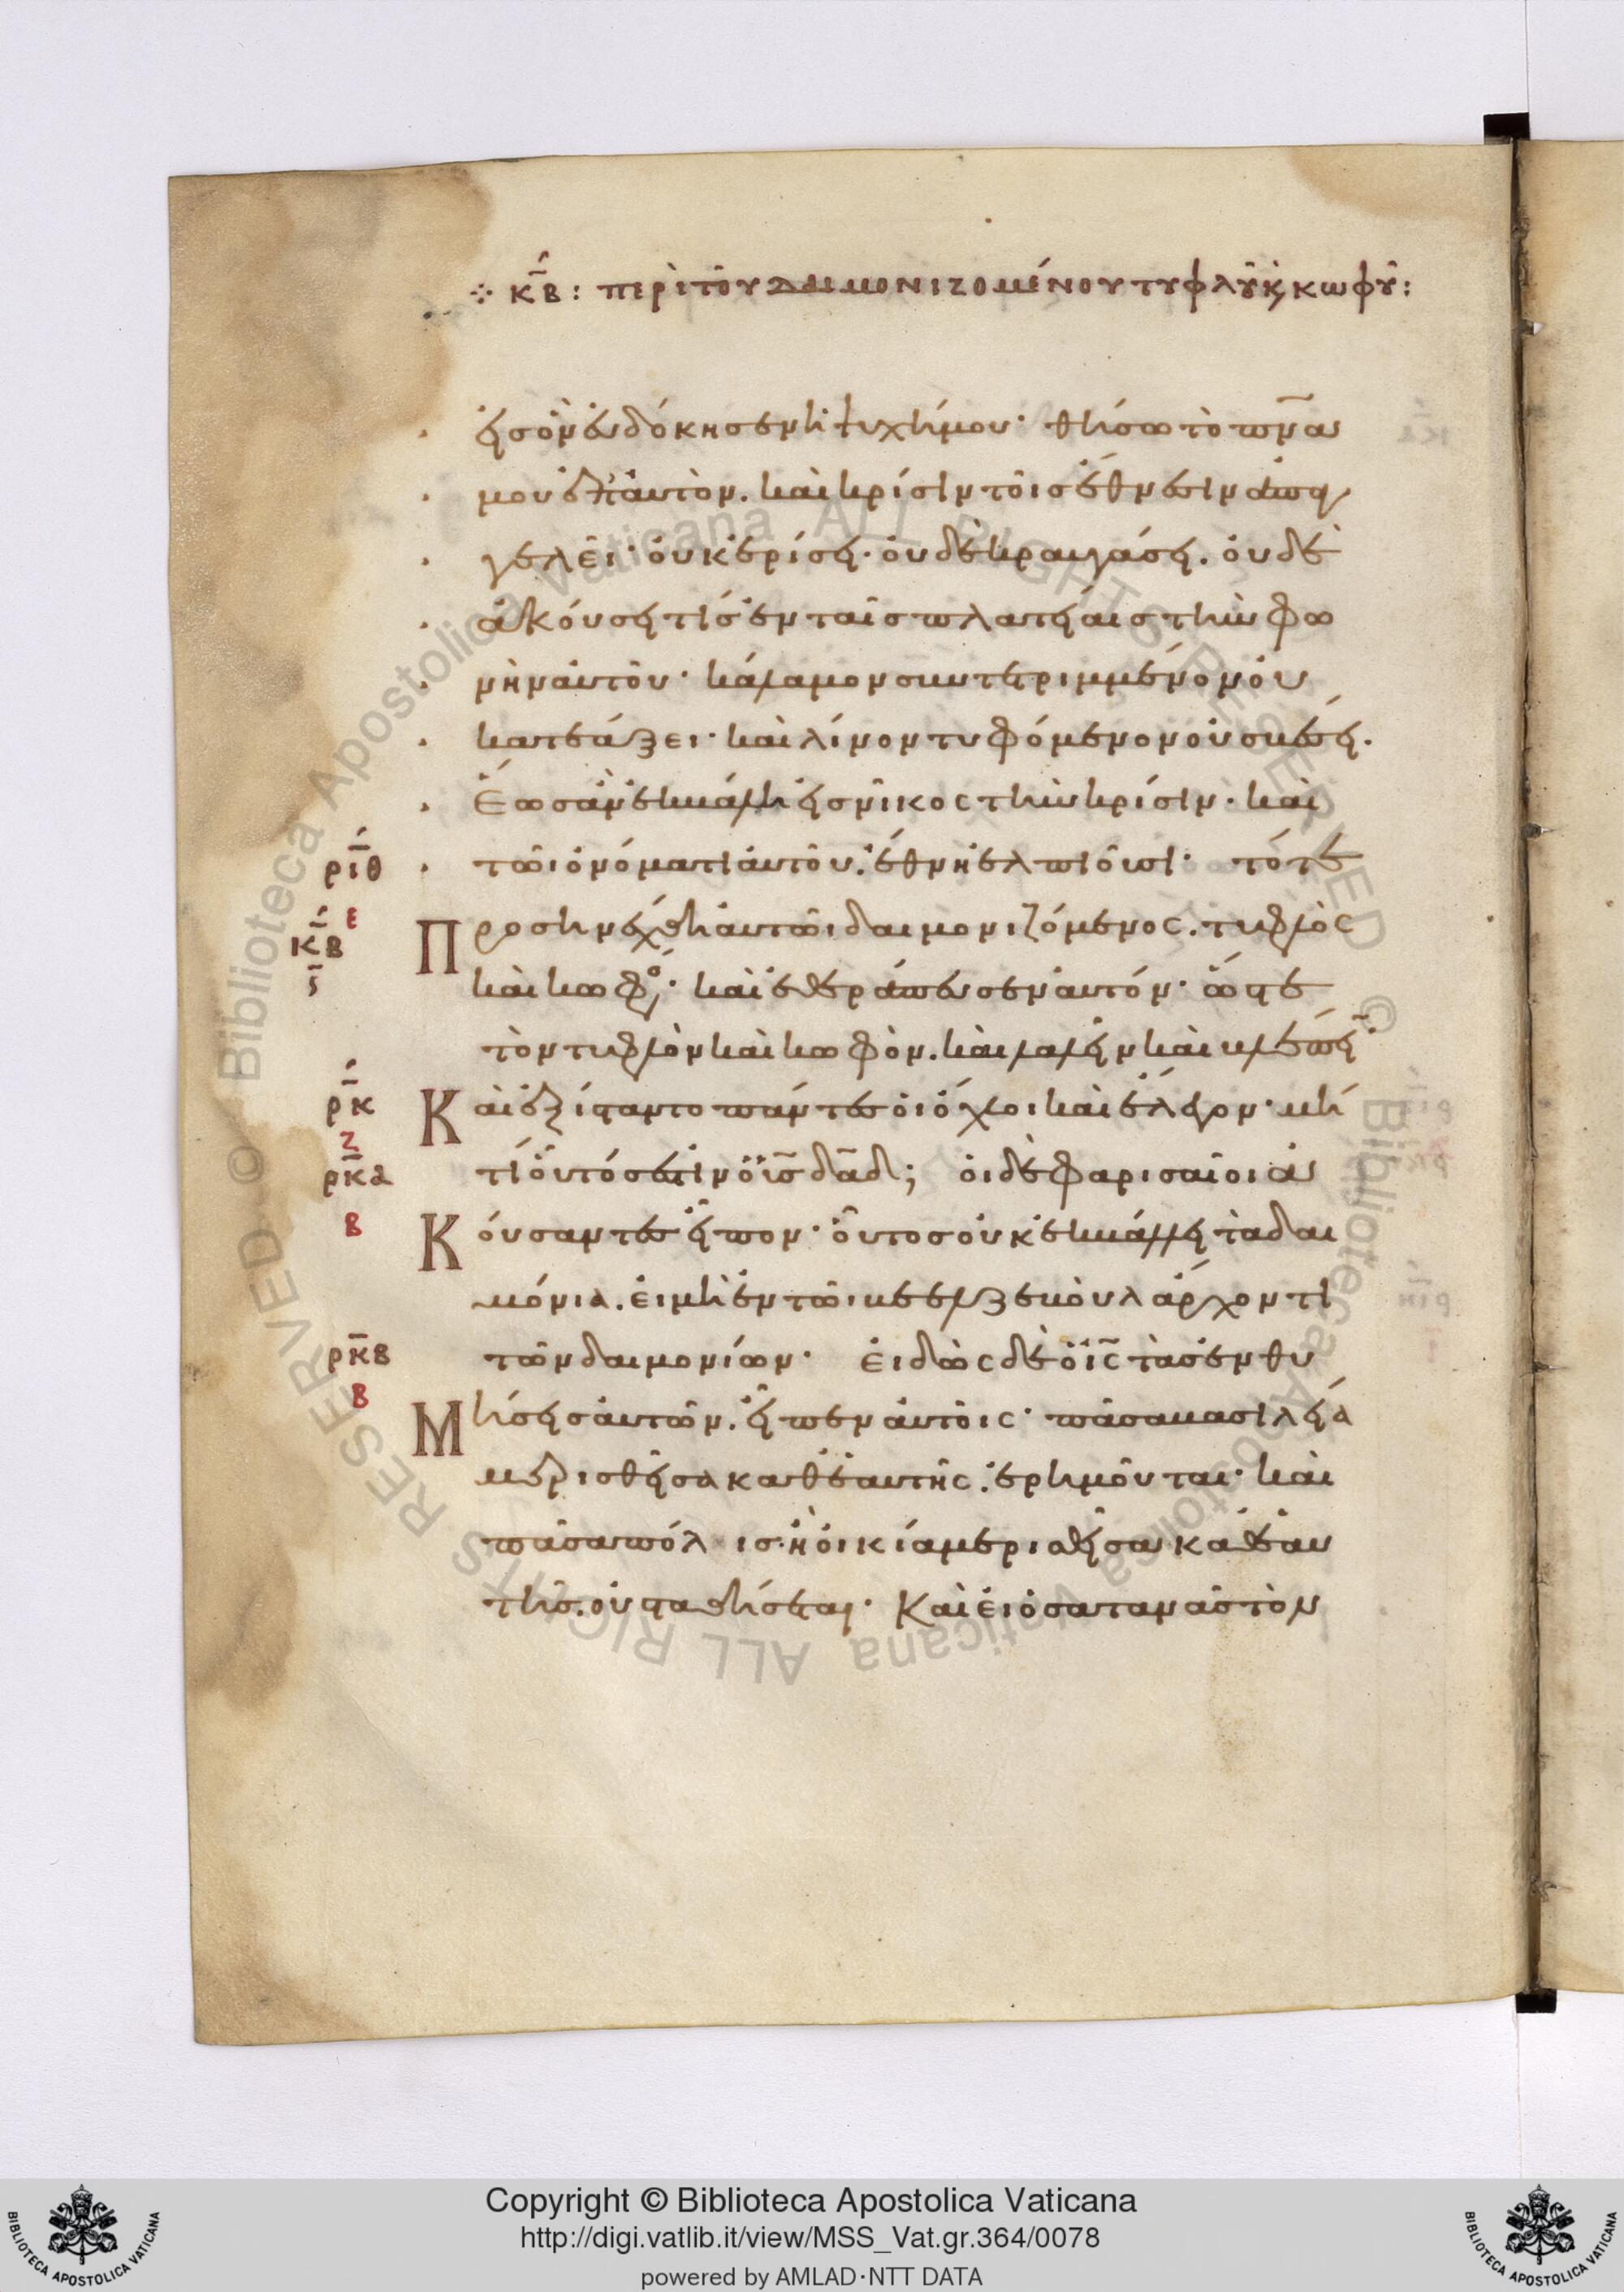 ⁘ κ̅β: περὶ τοῦ δαιμονιζομένου τυφλοῦ κ̀ κωφοῦ:
εἰς ὃν εὐδόκησεν ἡ ψυχή μου· θήσω τὸ π̅ν̅α
μου ἐπ' αὐτὸν. καὶ κρίσιν τοῖς ἔθνεσιν ἀπαγ
γελεῖ· οὐκ ἐρίσει· οὐδὲ κραυγάσει. οὐδὲ
ἀκούσει τίς ἐν ταῖς πλατείαις τὴν φω
νὴν αὐτοῦ· κάλαμον συντετριμμένον οὐ
κατεάξει· καὶ λίνον τυφόμενον οὐ σβέσει.
Ἕως ἂν ἐκβάλη εἰς νῖκος τὴν κρίσιν· καὶ
ρ̅ι̅θ τῶι ὀνόματι αὐτοῦ. ἔθνη ἐλπιοῦσι· τότε
ε
κ̅β Προσηνέχθη αὐτῶι δαιμονιζόμενος. τυφλὸς
ς̅ καὶ κωφός· καὶ ἐθεράπευσεν αὐτόν· ὥστε
τὸν τυφλὸν καὶ κωφὸν. καὶ λαλεῖν καὶ βλέπειν·
ρ̅κ Καὶ ἐξίσταντο πάντες οἱ ὄχλοι καὶ ἔλεγον· μή
ζ
ρ̅κ̅α τί οὗτός ἐστιν ὁ ϊ̅ς̅ δ̅α̅δ; οἱ δὲ φαρισαῖοι ἀ
β Κούσαντες εἶπον· οὗτος οὐκ ἐκβάλλει τὰ δαι
μόνια. εἰ μὴ ἐν τῶι βεελζεβοὺλ ἄρχοντι
ρ̅κ̅β τῶν δαιμονίων· εἰδὼς δὲ ὁ ι̅ς̅ τὰς ἐνθυ
β
Μήσεις αὐτῶν. εἶπεν αὐτοῖς· πᾶσα βασιλεία
μερισθεῖσα καθ' ἑαυτῆς. ἐρημοῦται· καὶ
πᾶσα πόλις. ἢ οἰκία μερισθεῖσα καθ' ἑαυ
τῆς. οὐ σταθήσεται· Καὶ εἰ ὁ σατανᾶς τὸν
Copyright © Biblioteca Apostolica Vaticana
http://digi.vatlib.it/view/MSS_Vat.gr.364/0078
powered by AMLAD·NTT DATA
BIBLIOTECA APOSTOLICA VATICANA
BIBLIOTECA APOSTOLICA VATICANA
© Biblioteca Apostolica Vaticana ALL RIGHTS RESERVED
© Biblioteca Apostolica Vaticana ALL RIGHTS RESERVED